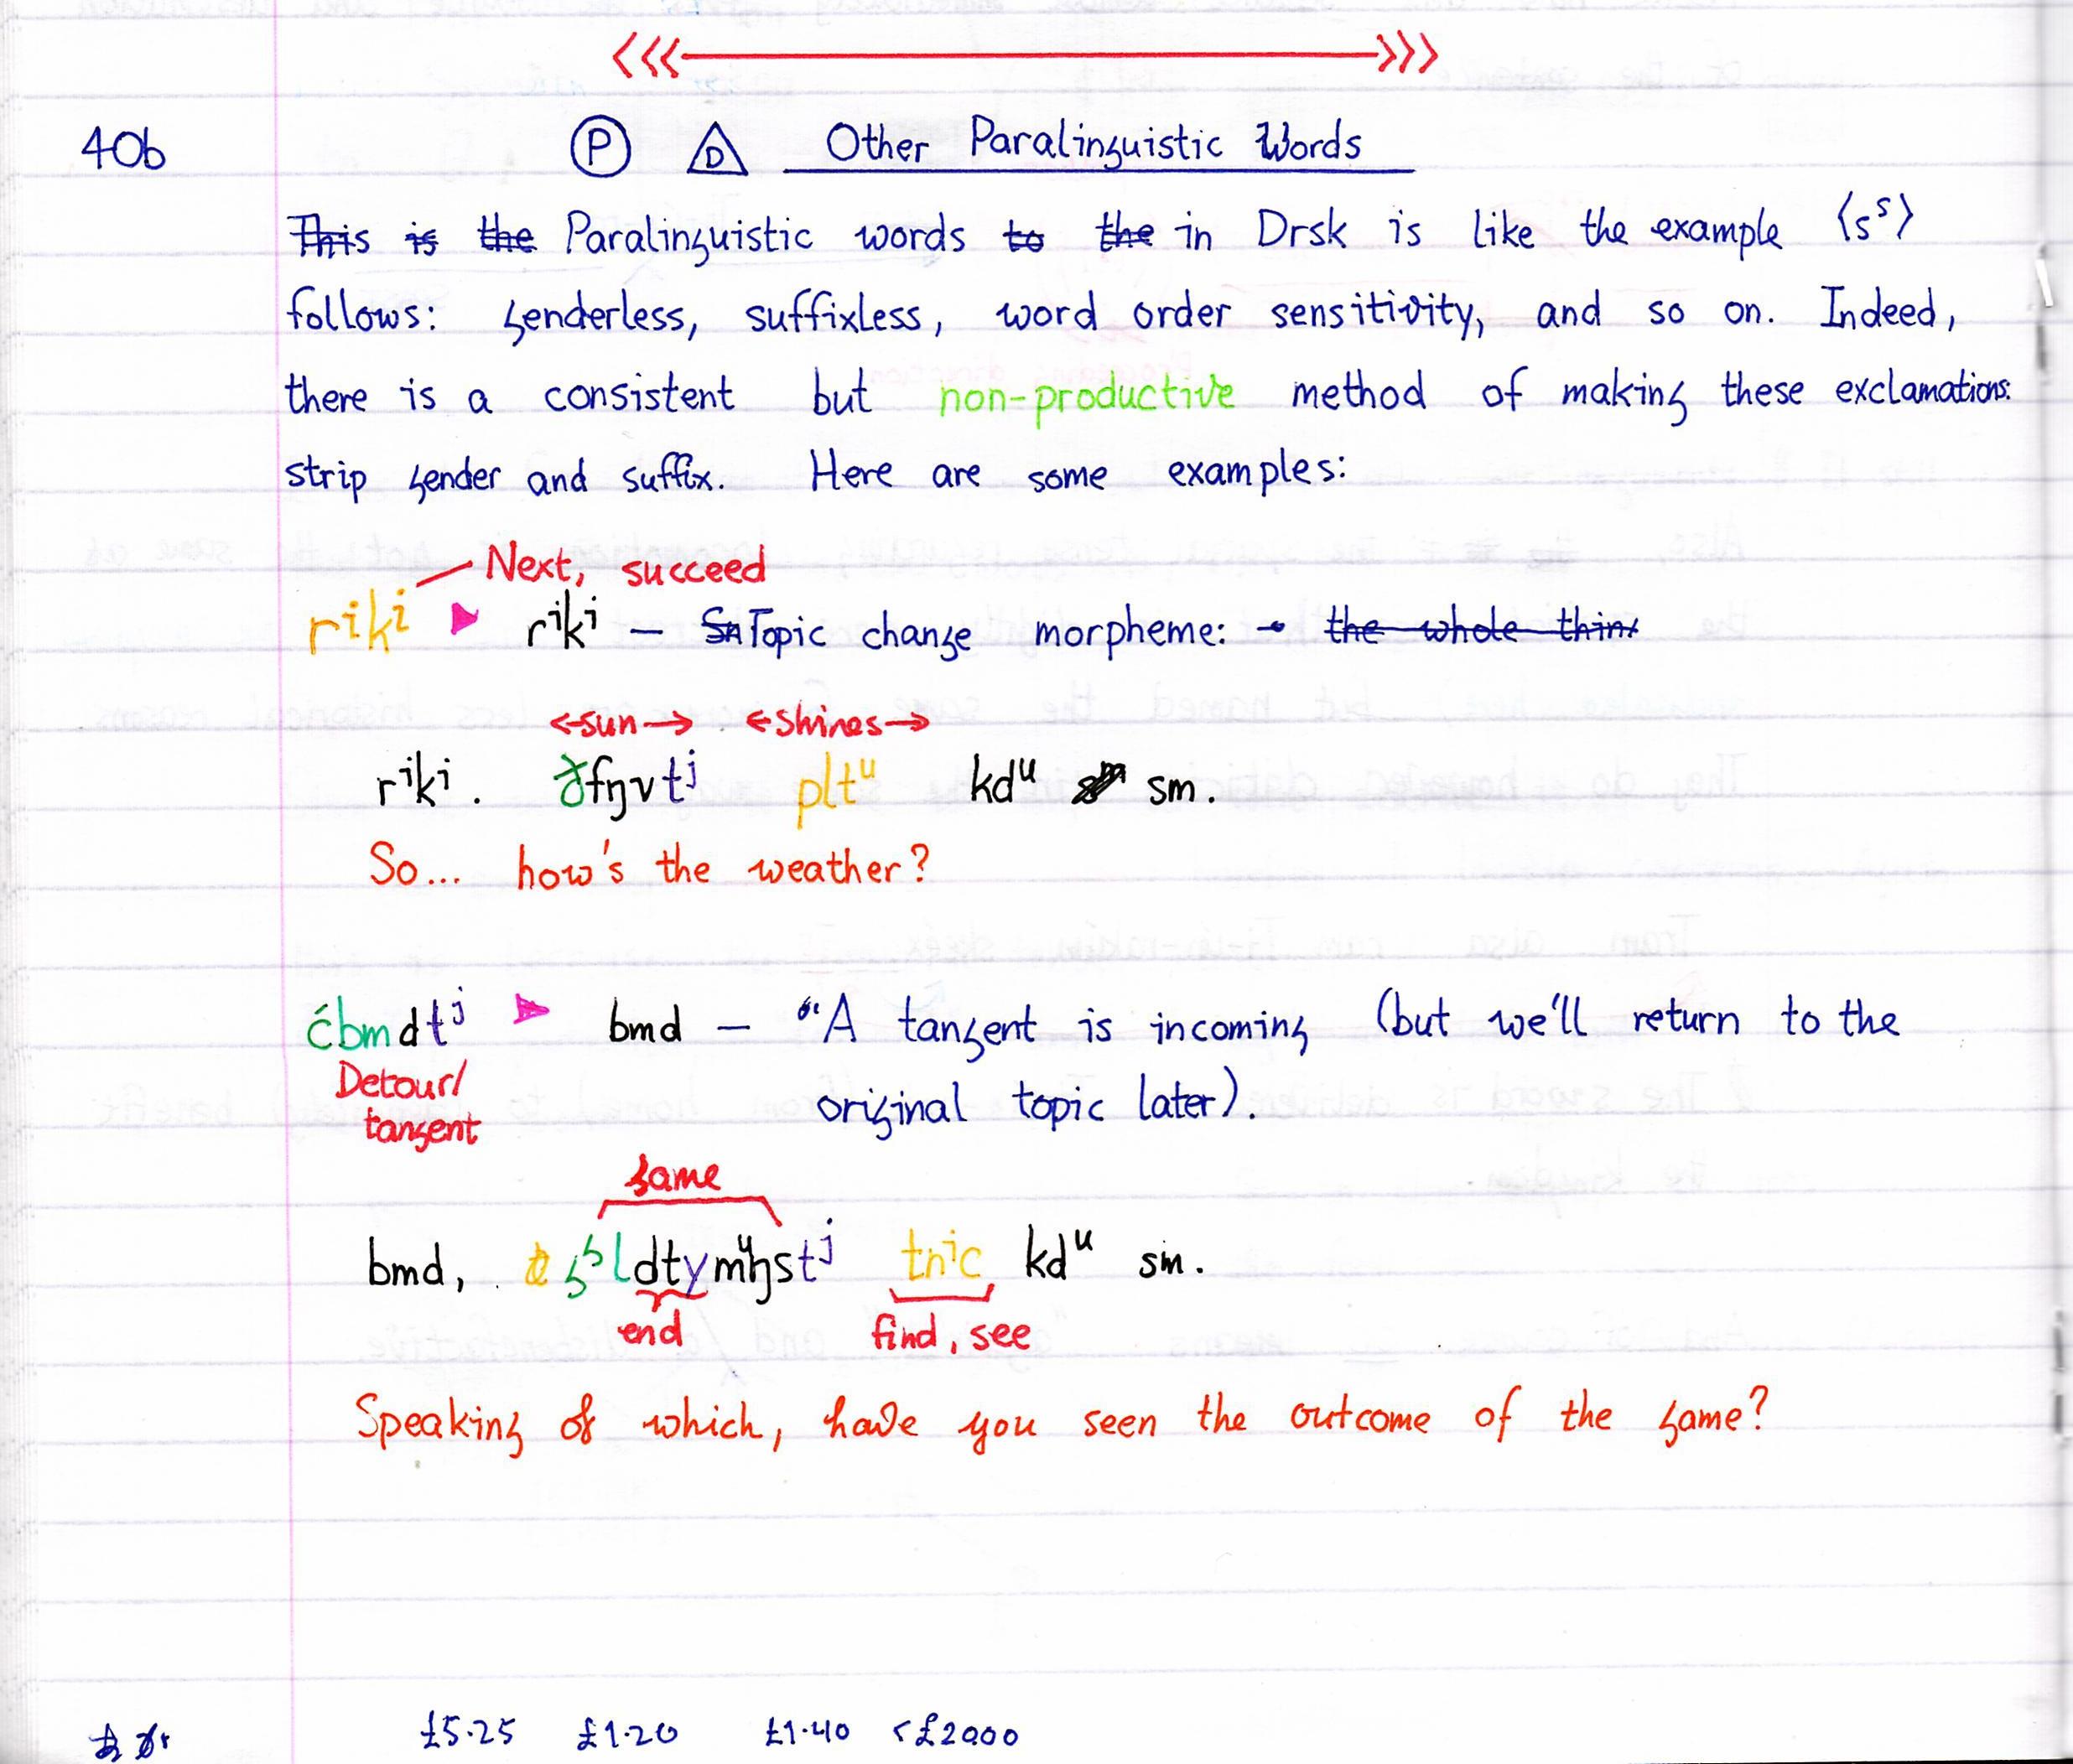 40b Ⓟ D Other Paralinguistic Words
This is the Paralinguistic words to the in Drsk is like the example ⟨sˢ⟩
follows: genderless, suffixless, word order sensitivity, and so on. Indeed,
there is a consistent but non-productive method of making these exclamations:
strip gender and suffix. Here are some examples:
Next, succeed
rⁱkⁱ ► rⁱkⁱ – Topic change morpheme: the whole thing
←sun→ ←shines→
rⁱkⁱ. ðfŋvtʲ pltᵘ kdᵘ sm.
So... how's the weather?
ćbmdtʲ ► bmd – "A tangent is incoming (but we'll return to the
Detour/
original topic later).
tangent
game
bmd, kdᵘ sm.
end find, see
Speaking of which, have you seen the outcome of the game?
£5.25 £1.20 £1.40 <£2000